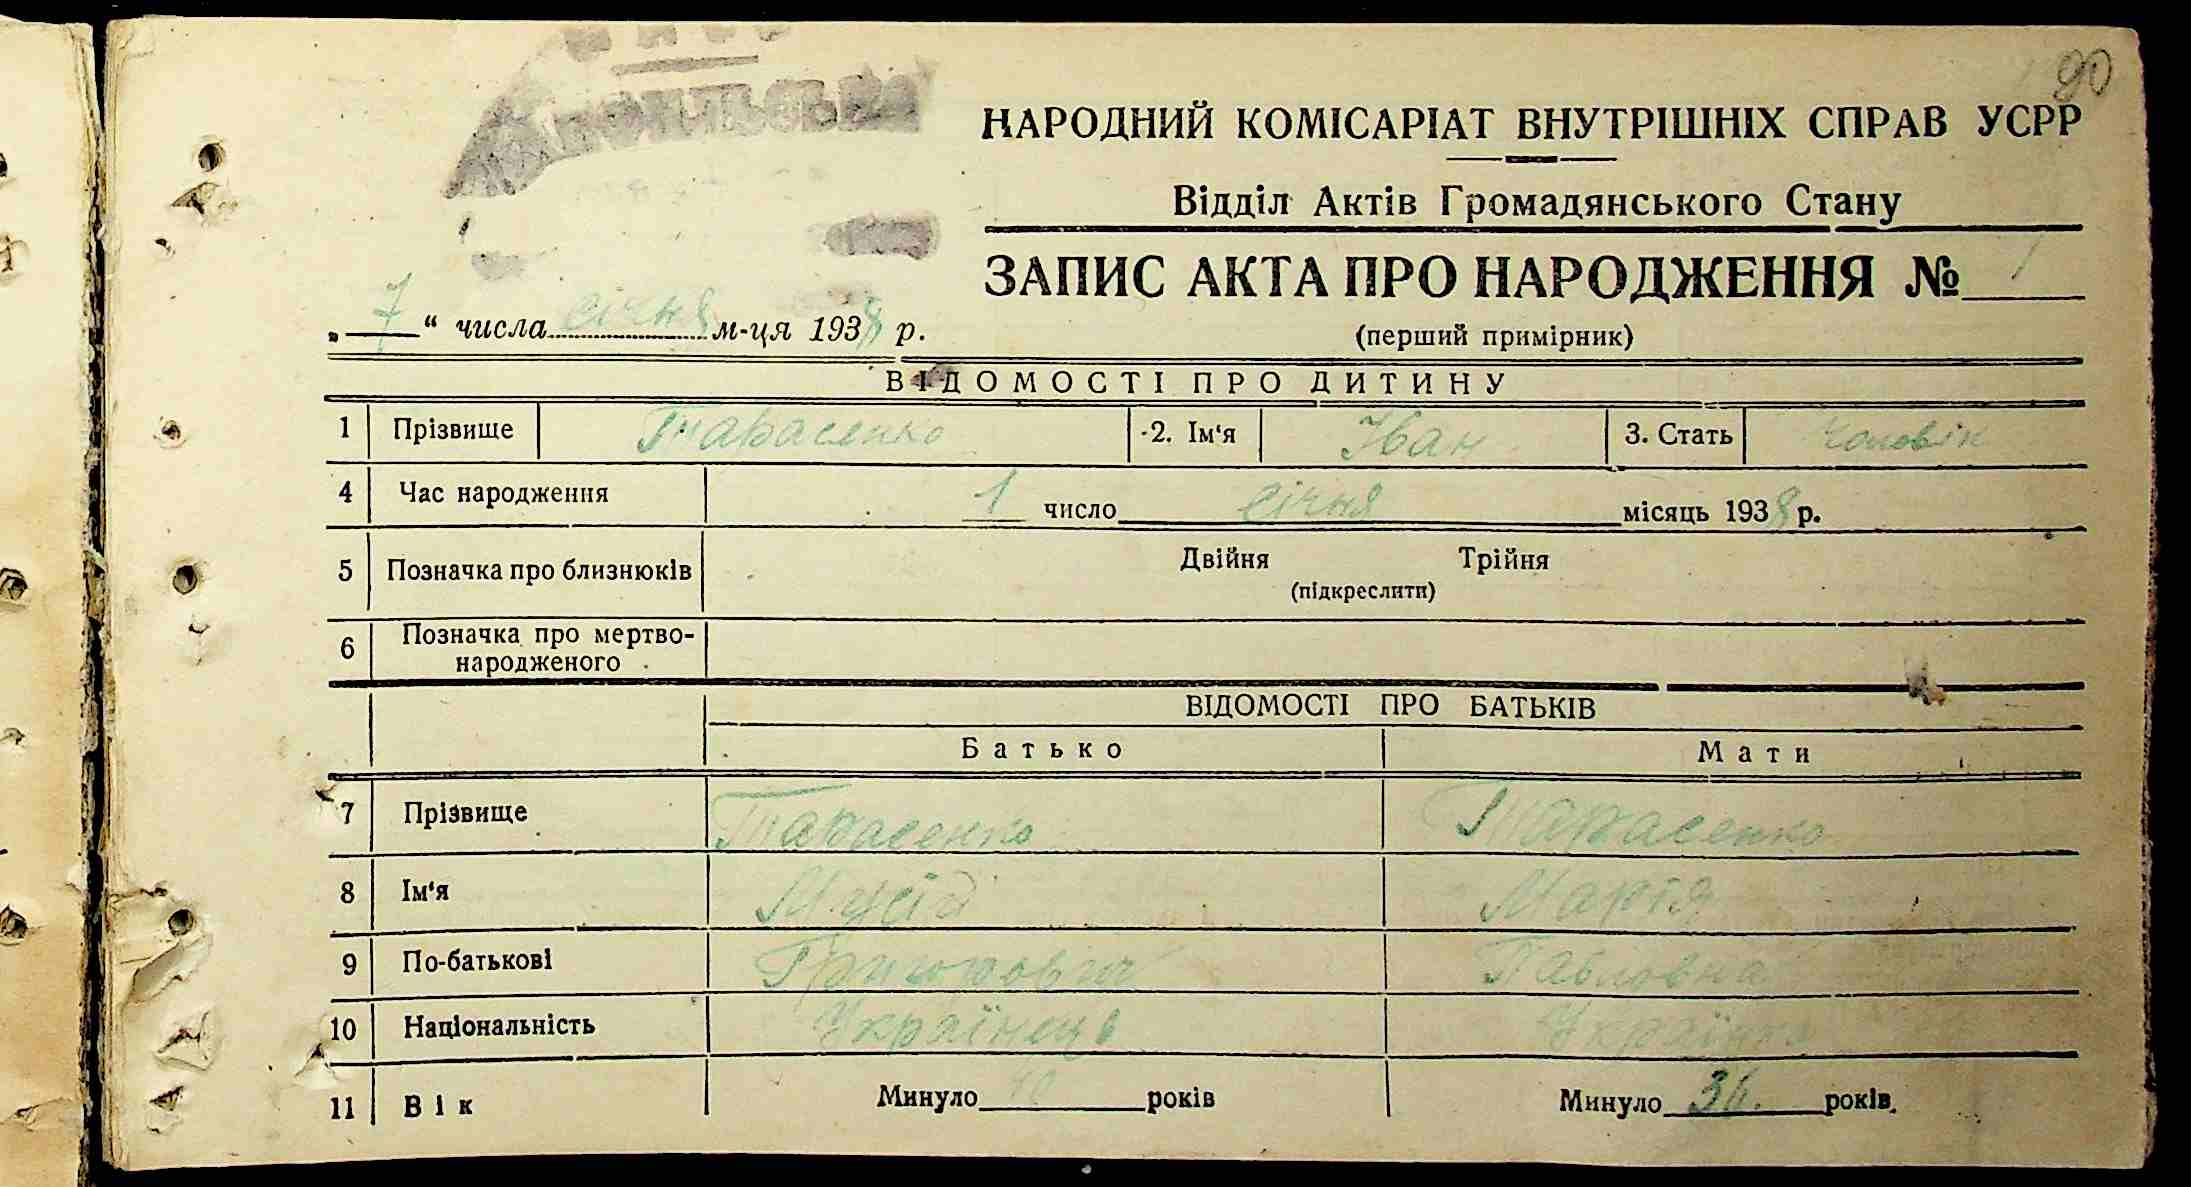 90
НАРОДНИЙ КОМІСАРІАТ ВНУТРІШНІХ СПРАВ УСРР
Відділ Актів Громадянського Стану
ЗАПИС АКТА ПРО НАРОДЖЕННЯ № 1
„ 7 “ числа січня м-ця 1938 р.
(перший примірник)
ВІДОМОСТІ ПРО ДИТИНУ
1 Прізвище Тарасенко 2. Ім‘я Іван 3. Стать чоловік
4 Час народження 1 число січня місяць 1938 р.
5 Позначка про близнюків Двійня Трійня
(підкреслити)
6 Позначка про мертво-
народженого
ВІДОМОСТІ ПРО БАТЬКІВ
Батько Мати
7 Прізвище Тарасенко Тарасенко
8 Ім‘я Мусій Марія
9 По-батькові Павловна
10 Національність Українець Українка
11 Вік Минуло 40 років Минуло років.